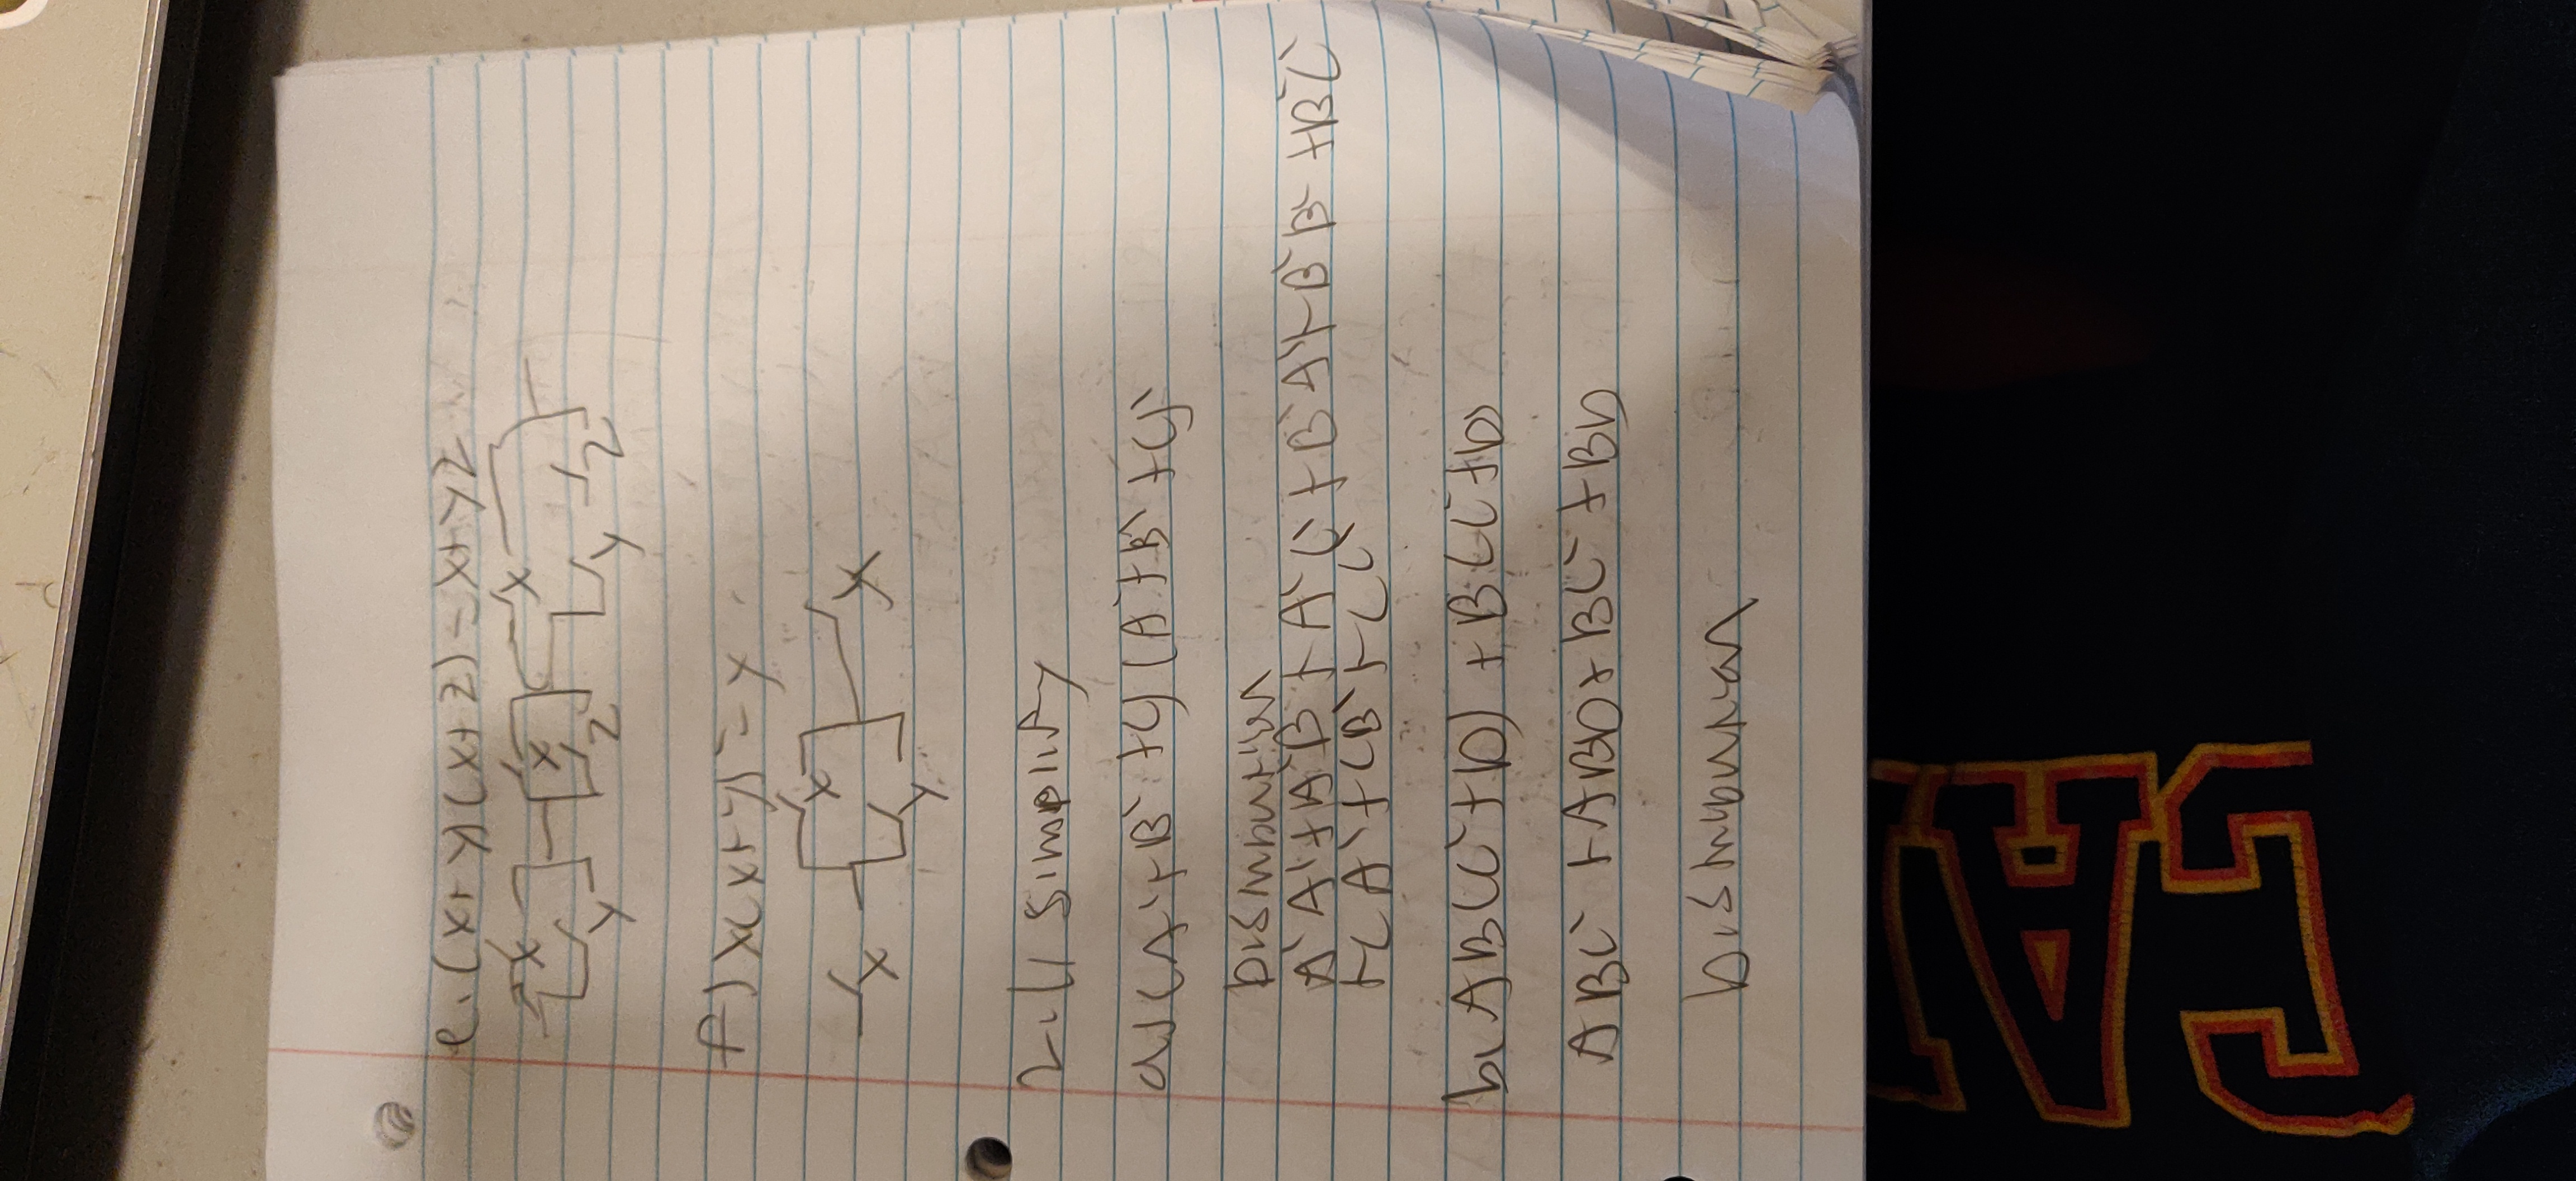 e. (x+y)(x+z) = x+yz
x x x
y z y z
f) x(x+y) = y
x
x x
y
2.11 Simplify
a) (A'+B'+C)(A'+B'+C)'
Distribution
A'A'+A'B'+A'C'+B'A'+B'B'+B'C'
+CA'+CB'+CC'
b. AB(C'+D)+B(C'+D)
ABC'+ABD+BC'+BD
Distribution